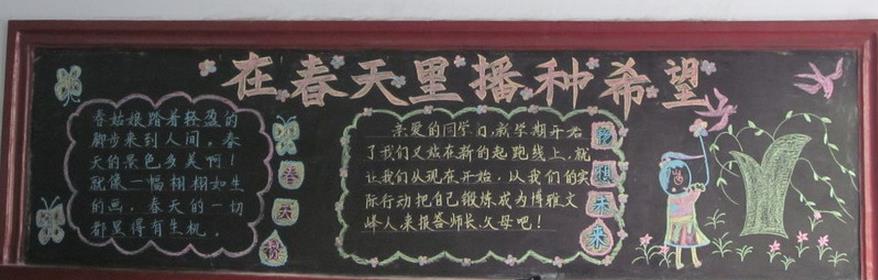 在春天里播种希望
春姑娘踏着轻盈的
脚步来到人间，春
天的景色多美啊！
就像一幅栩栩如生
的画，春天的一切
都显得有生机。
春天
亲爱的同学们，新学期开始
了我们又站在新的起跑线上，就
让我们从现在开始，以我们的实
际行动把自己锻炼成为博雅文
峰人来报答师长、父母吧！
畅想未来